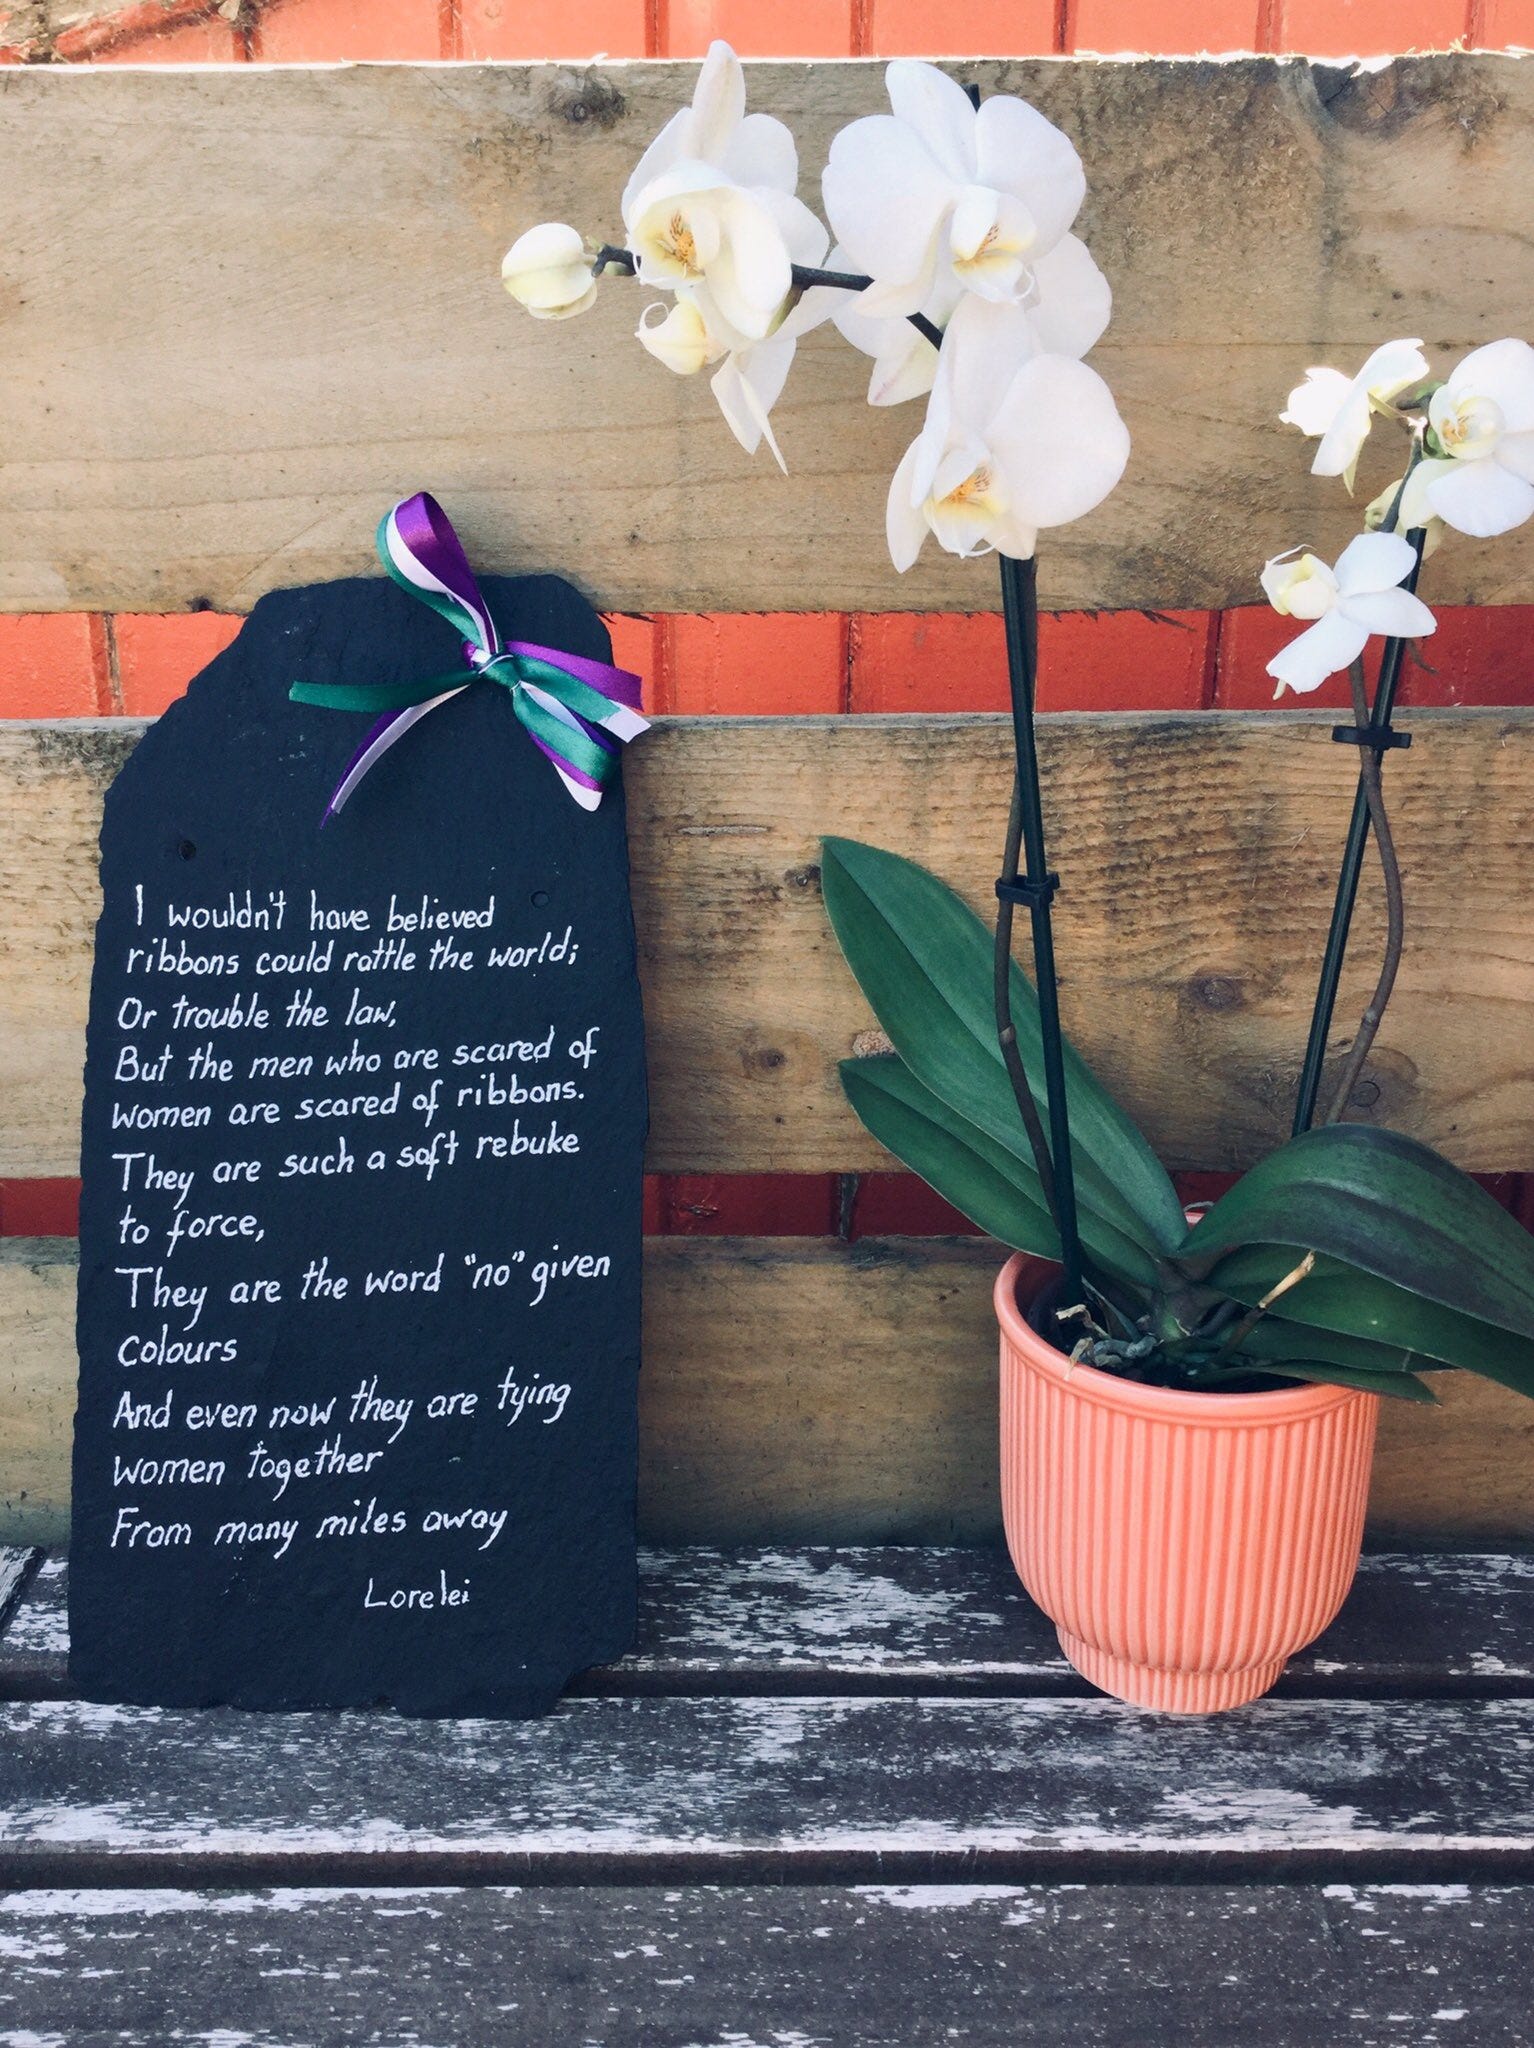 I wouldn't have believed
ribbons could rattle the world;
Or trouble the law,
But the men who are scared of
women are scared of ribbons.
They are such a soft rebuke
to force,
They are the word "no" given
colours
And even now they are tying
women together
From many miles away
Lorelei